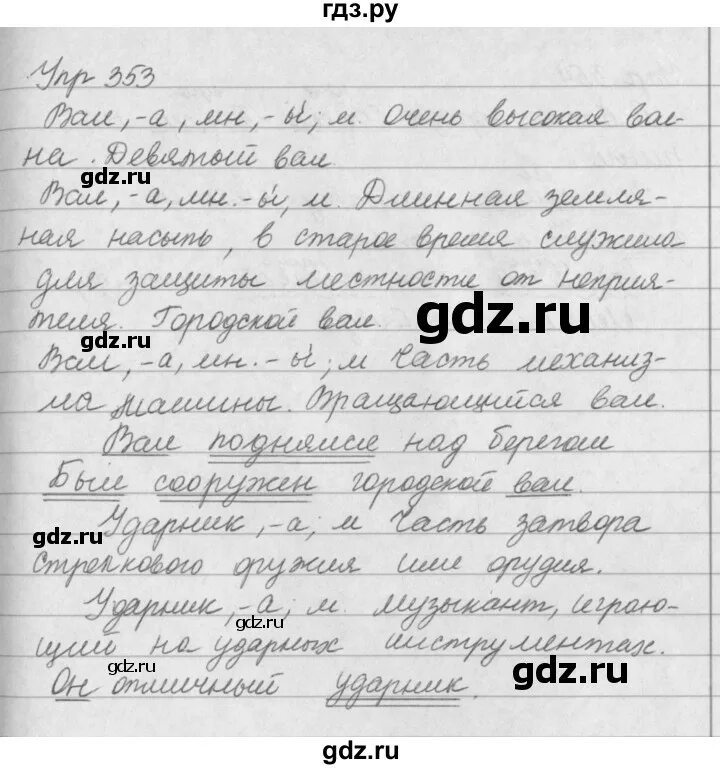 гдз.ру
Упр 353
Вал, -а, мн, -ы́; м. Очень высокая вол-
на. Девятый вал
gdz.ru
Вал, -а, мн. -ы́, м. Длинная земля-
ная насыпь, в старое время служила
для защиты местности от неприя-
теля. Городской вал.
gdz.ru
gdz.ru
Вал, -а, мн. -ы́; м Часть механиз-
ма машины. Вращающийся вал.
Вал поднялся над берегом
Был сооружен городской вал.
gdz.ru
Ударник, -а; м Часть затвора
gdz.ru
стрелкового оружия или орудия.
Ударник, -а; м. музыкант, играю-
gdz.ru
щий на ударных инструментах.
gdz.ru
gdz.ru
Он отличный ударник.
gdz.ru